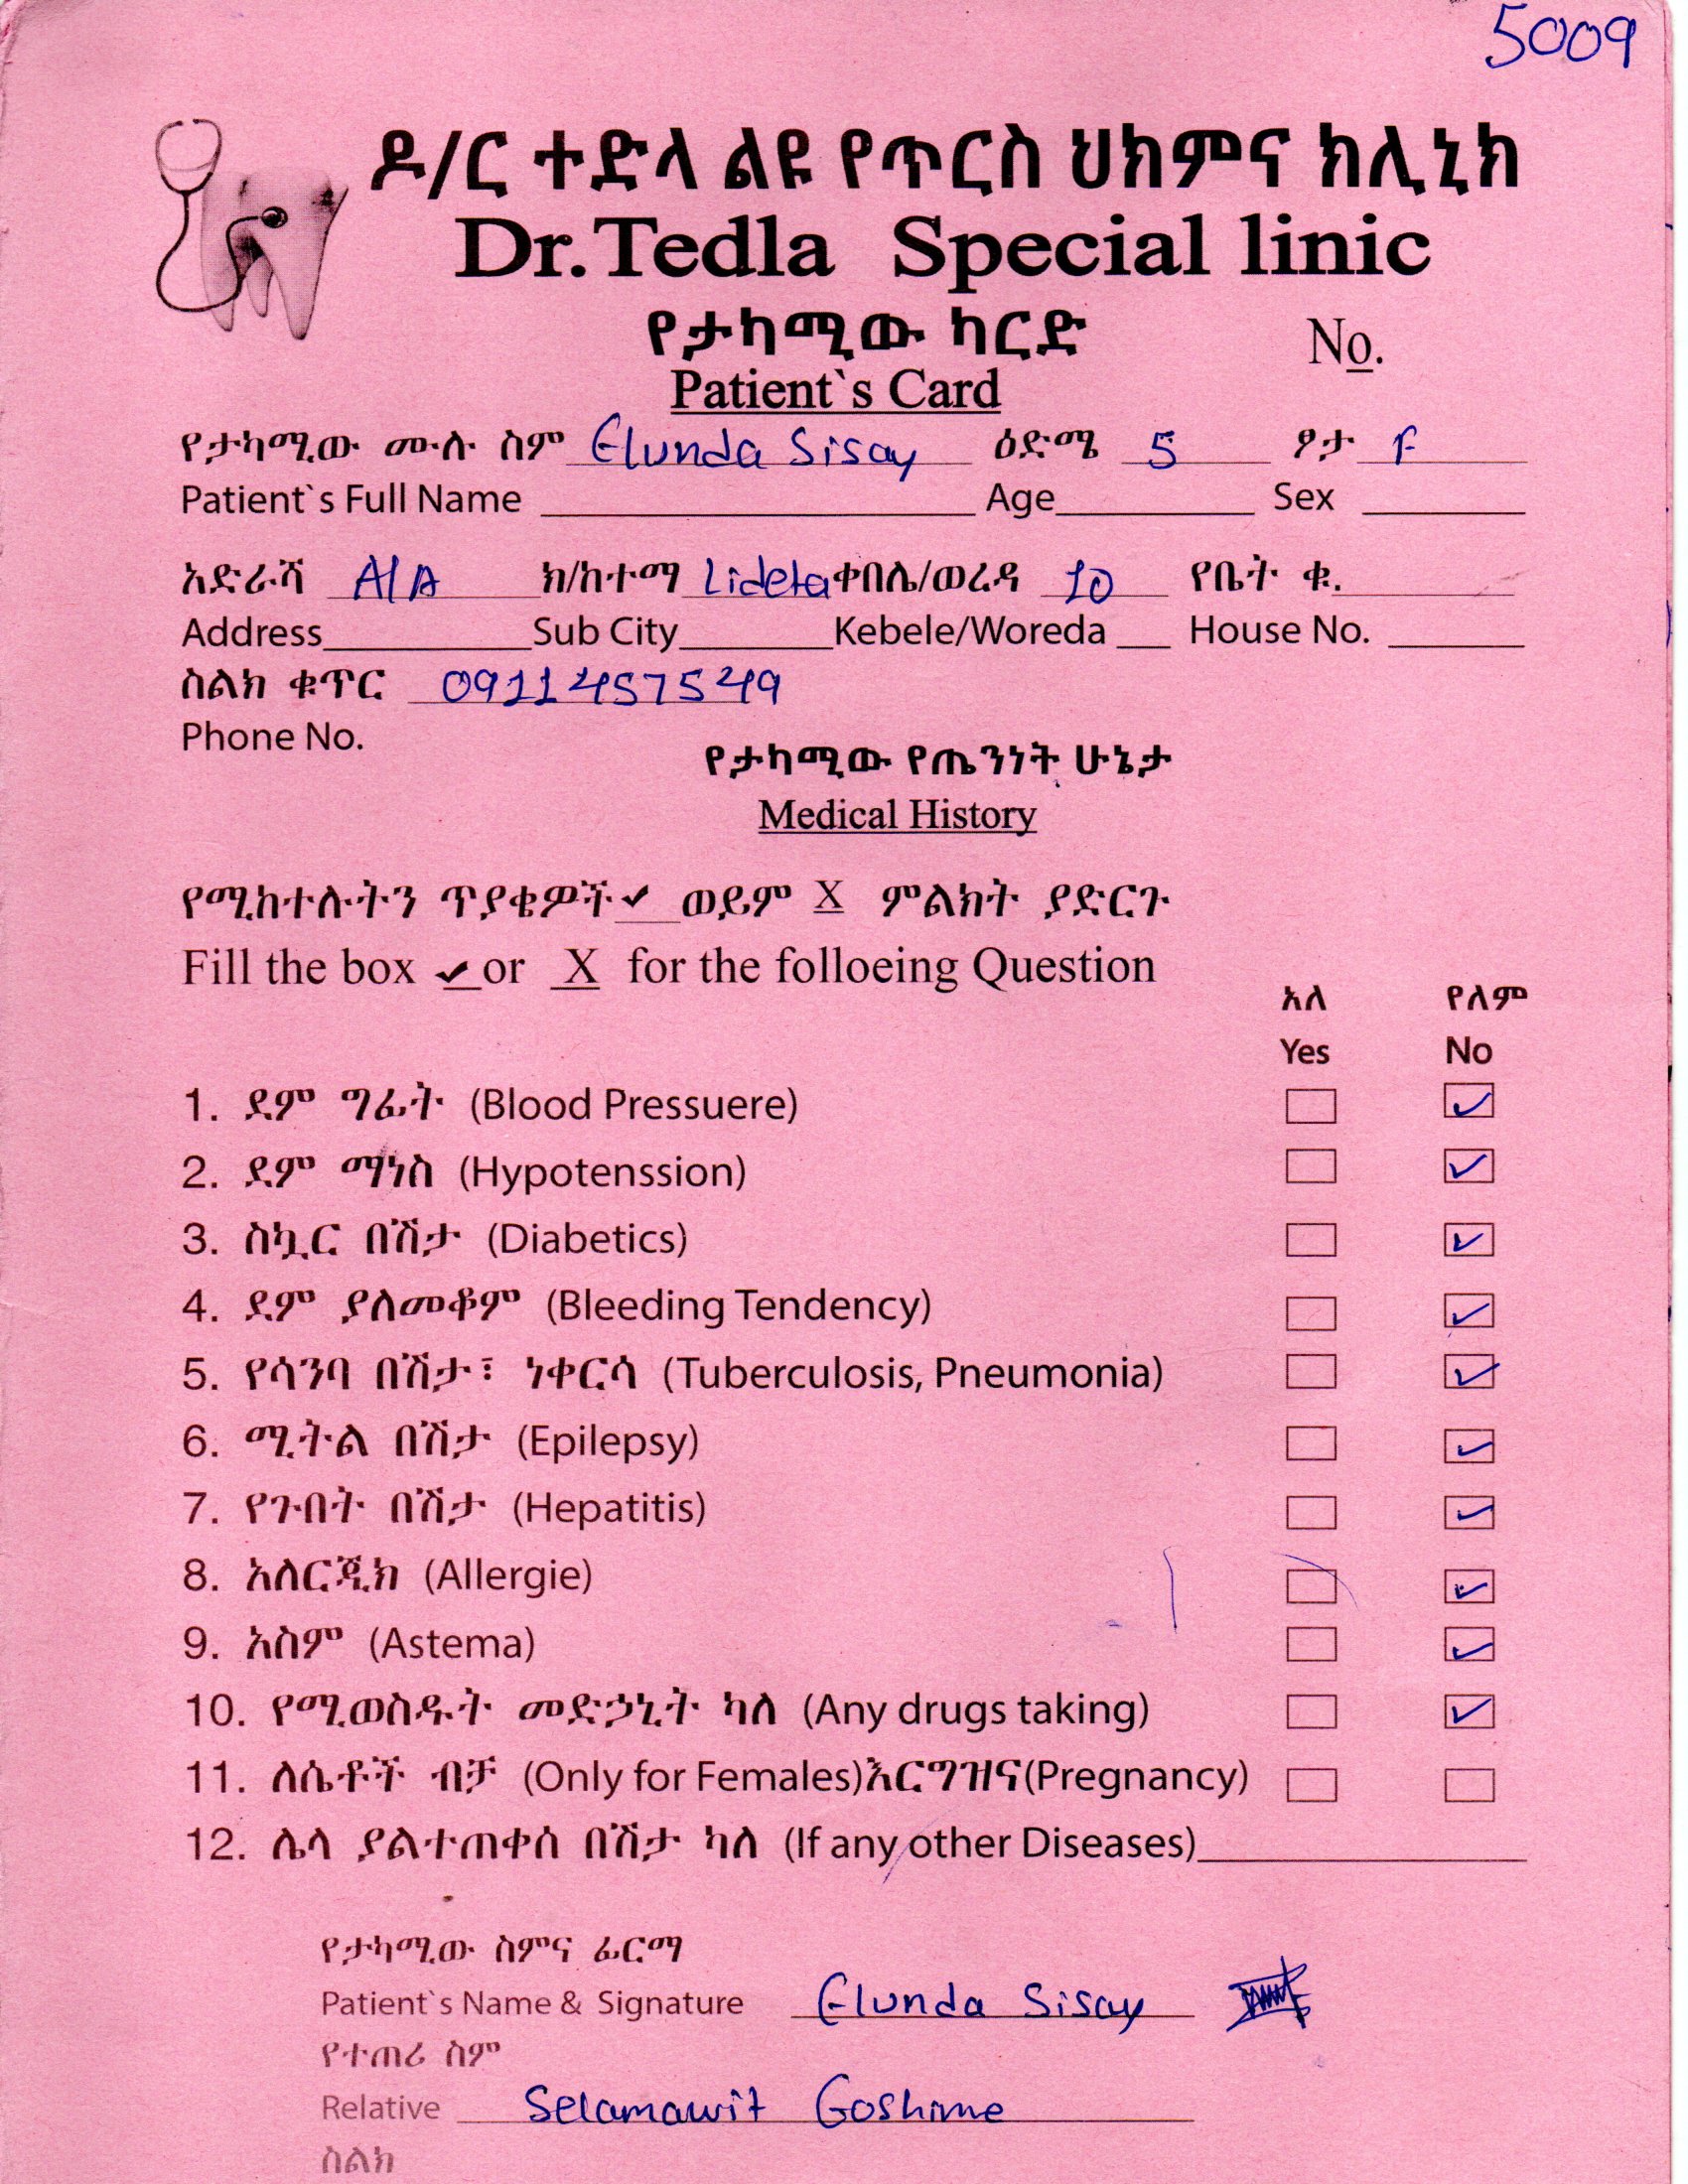 5009
ዶ/ር ተድላ ልዩ የጥርስ ህክምና ክሊኒክ
Dr.Tedla Special linic
የታካሚው ካርድ
No.
Patient`s Card
የታካሚው ሙሉ ስም Elunda Sisay ዕድሜ 5 ፆታ F
Patient`s Full Name Age Sex
አድራሻ A/A ክ/ከተማ Lideta ቀበሌ/ወረዳ 10 የቤት ቁ.
Address Sub City Kebele/Woreda House No.
ስልክ ቁጥር 0911457549
Phone No.
የታካሚው የጤንነት ሁኔታ
Medical History
የሚከተሉትን ጥያቄዎች ✔ ወይም X ምልክት ያድርጉ
Fill the box ✔ or X for the folloeing Question
አለ የለም
Yes No
1. ደም ግፊት (Blood Pressuere) ✓
2. ደም ማነስ (Hypotenssion) ✓
3. ስኳር በሽታ (Diabetics) ✓
4. ደም ያለመቆም (Bleeding Tendency) ✓
5. የሳንባ በሽታ፣ ነቀርሳ (Tuberculosis, Pneumonia) ✓
6. ሚትል በሽታ (Epilepsy) ✓
7. የጉበት በሽታ (Hepatitis) ✓
8. አለርጂክ (Allergie) ✓
9. አስም (Astema) ✓
10. የሚወስዱት መድኃኒት ካለ (Any drugs taking) ✓
11. ለሴቶች ብቻ (Only for Females)እርግዝና(Pregnancy)
12. ሌላ ያልተጠቀሰ በሽታ ካለ (If any other Diseases)
የታካሚው ስምና ፊርማ
Patient`s Name & Signature Elunda Sisay
የተጠሪ ስም
Relative Selamawit Goshime
ስልክ